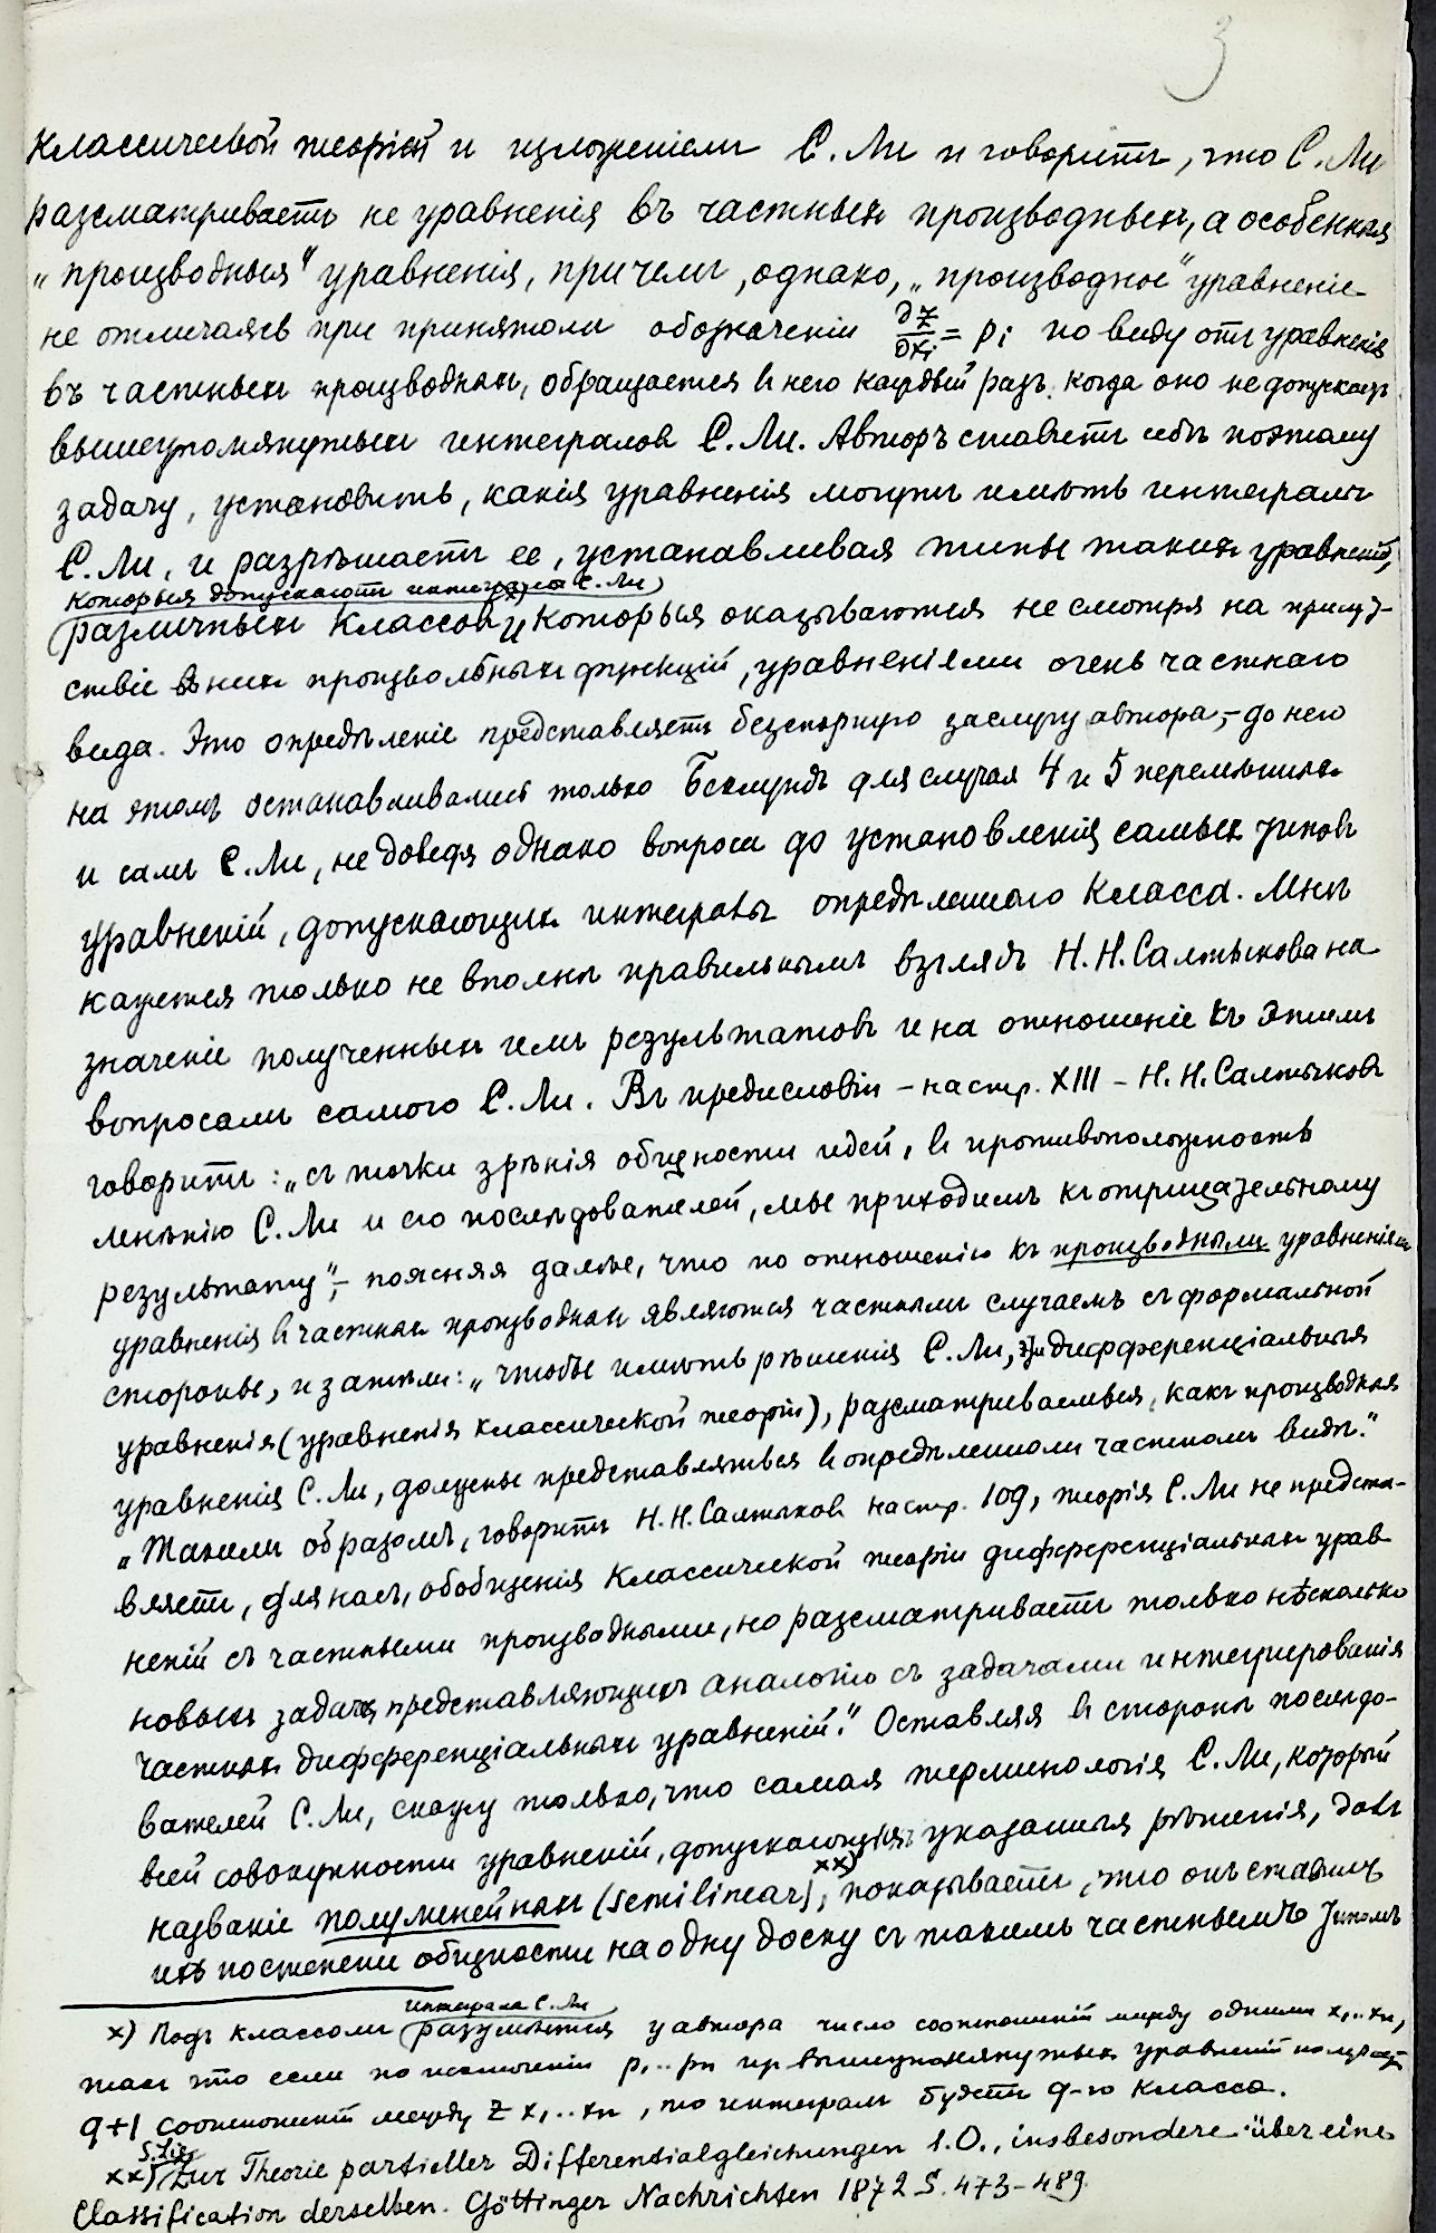 3
классической теорiей и изложенiемъ С. Ли и говоритъ, что С. Ли
разсматриваетъ не уравненiя въ частныхъ производныхъ, а особенныя
„производныя" уравненiя, причемъ, однако, „производное" уравненiе
не отличаясь при принятомъ обозначенiи ∂z/∂xi = pi по виду отъ уравненiя
въ частныхъ производныхъ, обращается в него каждый разъ когда оно не допускаетъ
вышеупомянутыхъ интеграловъ С. Ли. Авторъ ставитъ себѣ поэтому
задачу, установить, какiя уравненiя могутъ имѣть интегралы
С. Ли, и разрѣшаетъ ее, устанавливая типы такихъ уравненiй,
которыя допускаютъ интегралы С. Ли
различныхъ классовъ x) и которыя оказываются не смотря на присут-
ствiе в нихъ произвольныхъ функцiй, уравненiями очень частнаго
вида. Это опредѣленiе представляетъ безспорную заслугу автора, – до него
на этомъ останавливались только Беклундъ для случая 4 и 5 перемѣнныхъ
и самъ С. Ли, не доведя однако вопроса до установленiя самыхъ типовъ
уравненiй, допускающихъ интегралы опредѣленнаго класса. Мнѣ
кажется только не вполнѣ правильнымъ взглядъ Н. Н. Салтыкова на
значенiе полученныхъ имъ результатовъ и на отношенiе къ этимъ
вопросамъ самого С. Ли. Въ предисловiи – на стр. XIII – Н. Н. Салтыковъ
говоритъ: „съ точки зрѣнiя общности идей, в противоположность
мнѣнiю С. Ли и его послѣдователей, мы приходимъ къ отрицательному
результату", – поясняя далѣе, что по отношенiю къ производнымъ уравненiямъ
уравненiя в частныхъ производныхъ являются частнымъ случаемъ съ формальной
стороны, и затѣмъ: „чтобы имѣть рѣшенiя С. Ли, дифференцiальныя
уравненiя (уравненiя классической теорiи), разсматриваемыя, какъ производныя
уравненiя С. Ли, должны представляться в опредѣленномъ частномъ видѣ."
„Такимъ образомъ, говоритъ Н. Н. Салтыковъ на стр. 109, теорiя С. Ли не предста-
вляетъ, для насъ, обобщенiя классической теорiи дифференцiальныхъ урав-
ненiй съ частными производными, но разсматриваетъ только нѣсколько
новыхъ задачъ, представляющихъ аналогiю съ задачами интегрированiя
частныхъ дифференцiальныхъ уравненiй." Оставляя в сторонѣ послѣдо-
вателей С. Ли, скажу только, что самая терминологiя С. Ли, который
всей совокупности уравненiй, допускающихъ указанныя рѣшенiя, далъ
названiе полулинейныхъ (semilinear) xx), показываетъ, что онъ ставилъ
ихъ по степени общности на одну доску съ такимъ частнымъ типомъ
x) Подъ классомъ интеграла С. Ли разумѣется у автора число соотношенiй между одними x1..xn,
такъ что если по исключенiи p1..pn изъ вышеупомянутыхъ уравненiй получается
q+1 соотношенiй между z x1..xn, то интегралъ будетъ q-го класса.
xx) S. Lie Zur Theorie partieller Differentialgleichungen 1. O., insbesondere über eine
Classification derselben. Göttinger Nachrichten 1872 S. 473–489.